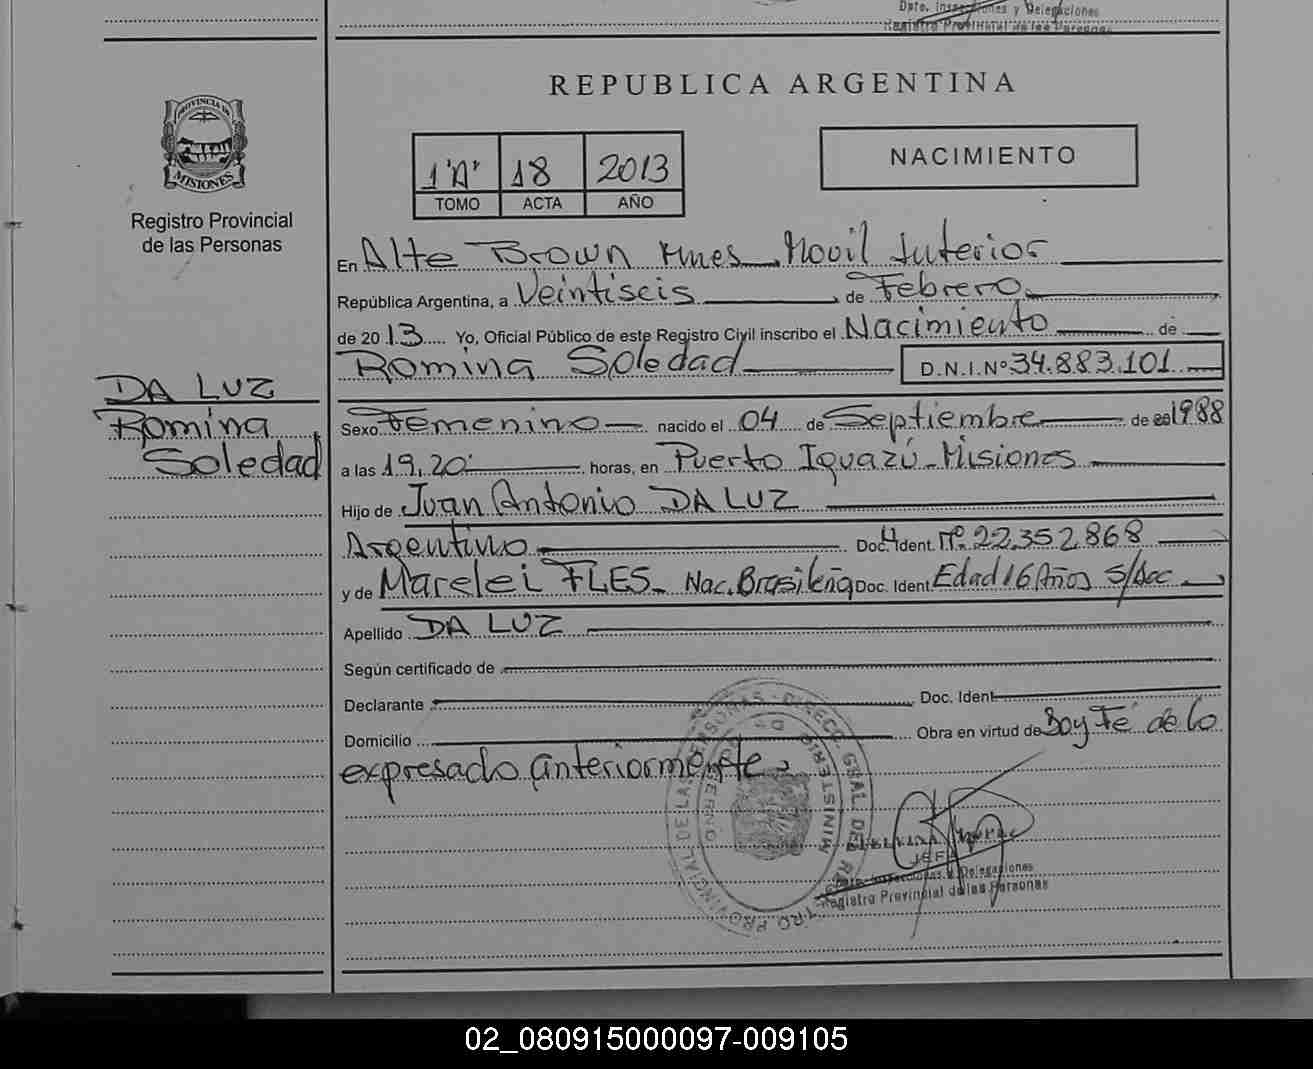 Dpto. Inspecciones y Delegaciones
Registro Provincial de las Personas
REPUBLICA ARGENTINA
PROVINCIA DE
MISIONES
Registro Provincial
de las Personas
1"A" 18 2013
TOMO ACTA AÑO
NACIMIENTO
En Alte Brown Mnes Movil Interior
República Argentina, a Veintiseis de Febrero
de 2013 Yo, Oficial Público de este Registro Civil inscribo el Nacimiento de
Romina Soledad D.N.I.Nº 34.883.101
DA LUZ
Romina
Soledad
Sexo Femenino nacido el 04 de Septiembre de 1988
a las 19,20 horas, en Puerto Iguazú - Misiones
Hijo de Juan Antonio DA LUZ
Argentino Doc. Ident. Nº 22.352.868
y de Marelei FLES - Nac. Brasileña Doc. Ident Edad 16 Años s/doc
Apellido DA LUZ
Según certificado de
Declarante Doc. Ident
Domicilio Obra en virtud de Doy Fé de lo
expresado anteriormente
REGISTRO PROVINCIAL DE LAS PERSONAS - DIRECC. GRAL. DEL
MINISTERIO DE GOBIERNO
JEFA
Dpto. Inspecciones y Delegaciones
Registro Provincial de las Personas
02_080915000097-009105